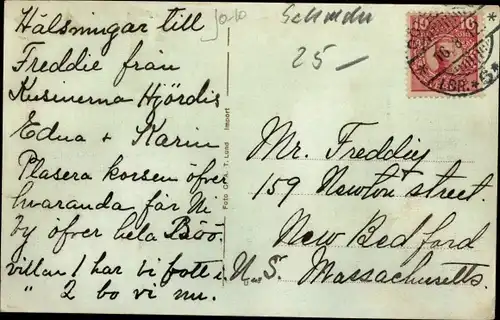 Hälsningar till
Freddie från
Kusinerna Hjördis
Edna + Karin
Plasera korsen öfver
hvaranda får Ni
by öfver hela Böö.
villan 1 har vi fått i
" 2 bo vi nu.
Foto T. Lund Import
25 —
10 10
Mr. Freddie
159 Newton street.
New Bedford
Massachusetts.
U. S.